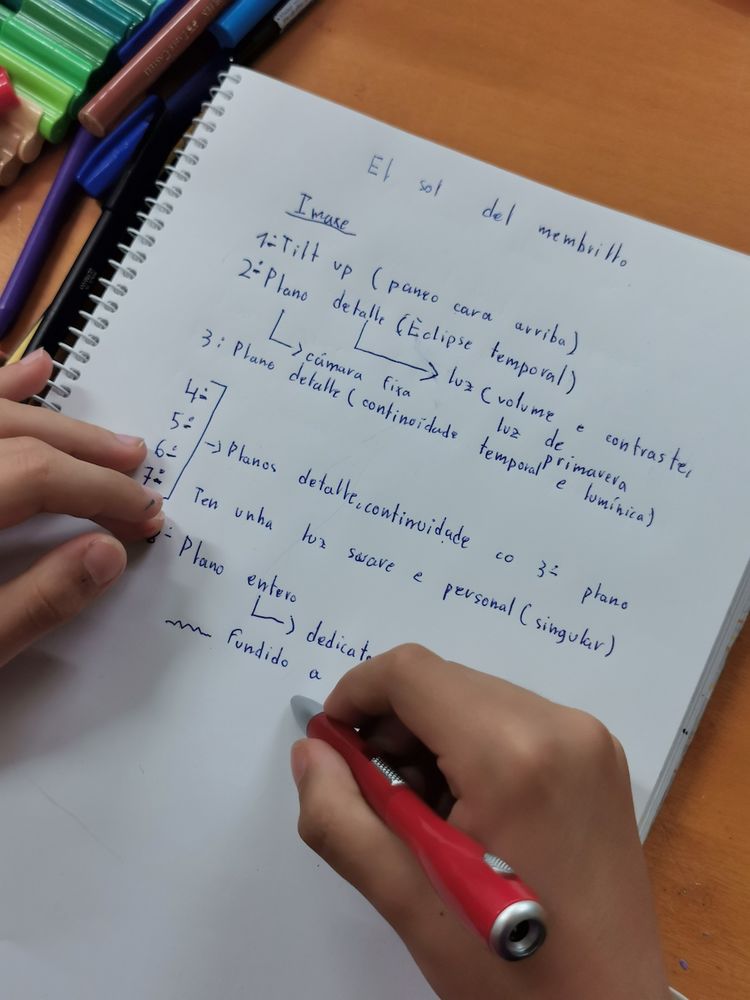 El sol del membrillo
Imaxe
1º: Tilt up (paneo cara arriba)
2º: Plano detalle (Eclipse temporal)
cámara fixa
luz (volume e contraste,
luz de primavera
3: Plano detalle (continoidade temporal e lumínica)
4º
5º
6º
7º
Planos detalle, continuidade co 3º plano
Ten unha luz suave e personal (singular)
Plano entero
Fundido a